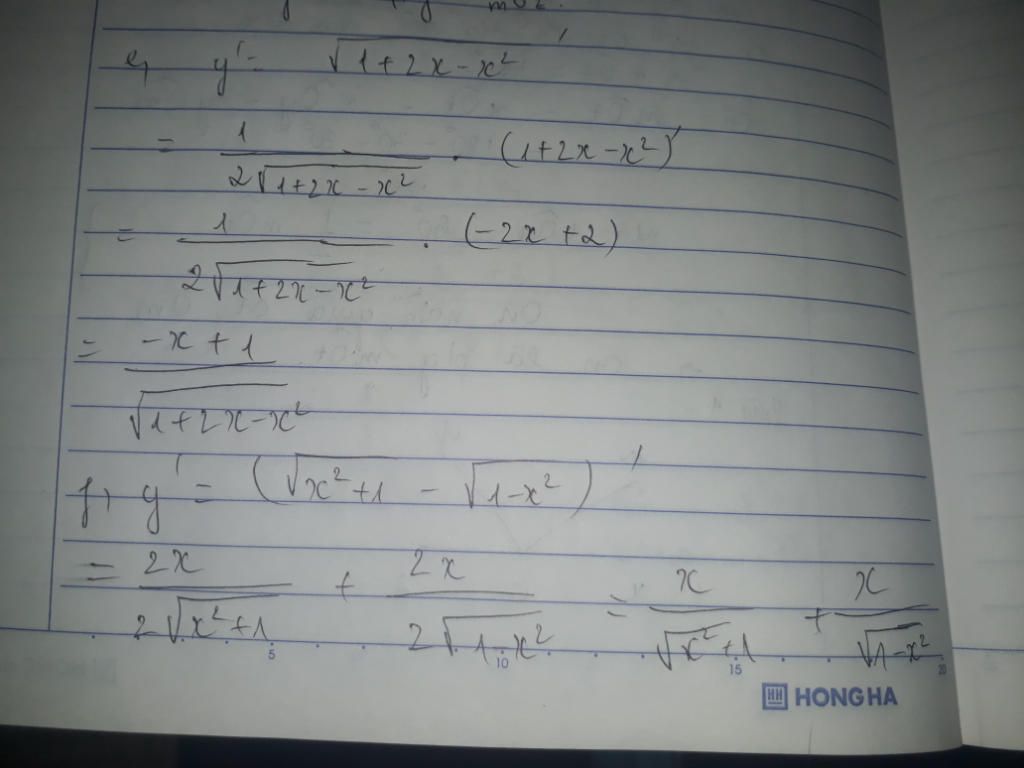 e, y' = √(1+2x-x²)'
= 1/(2√(1+2x-x²)) . (1+2x-x²)'
= 1/(2√(1+2x-x²)) . (-2x+2)
= (-x+1)/√(1+2x-x²)
f, y' = (√(x²+1) - √(1-x²))'
= 2x/(2√(x²+1)) + 2x/(2√(1-x²)) = x/√(x²+1) + x/√(1-x²)
5 10 15 20
HONG HA